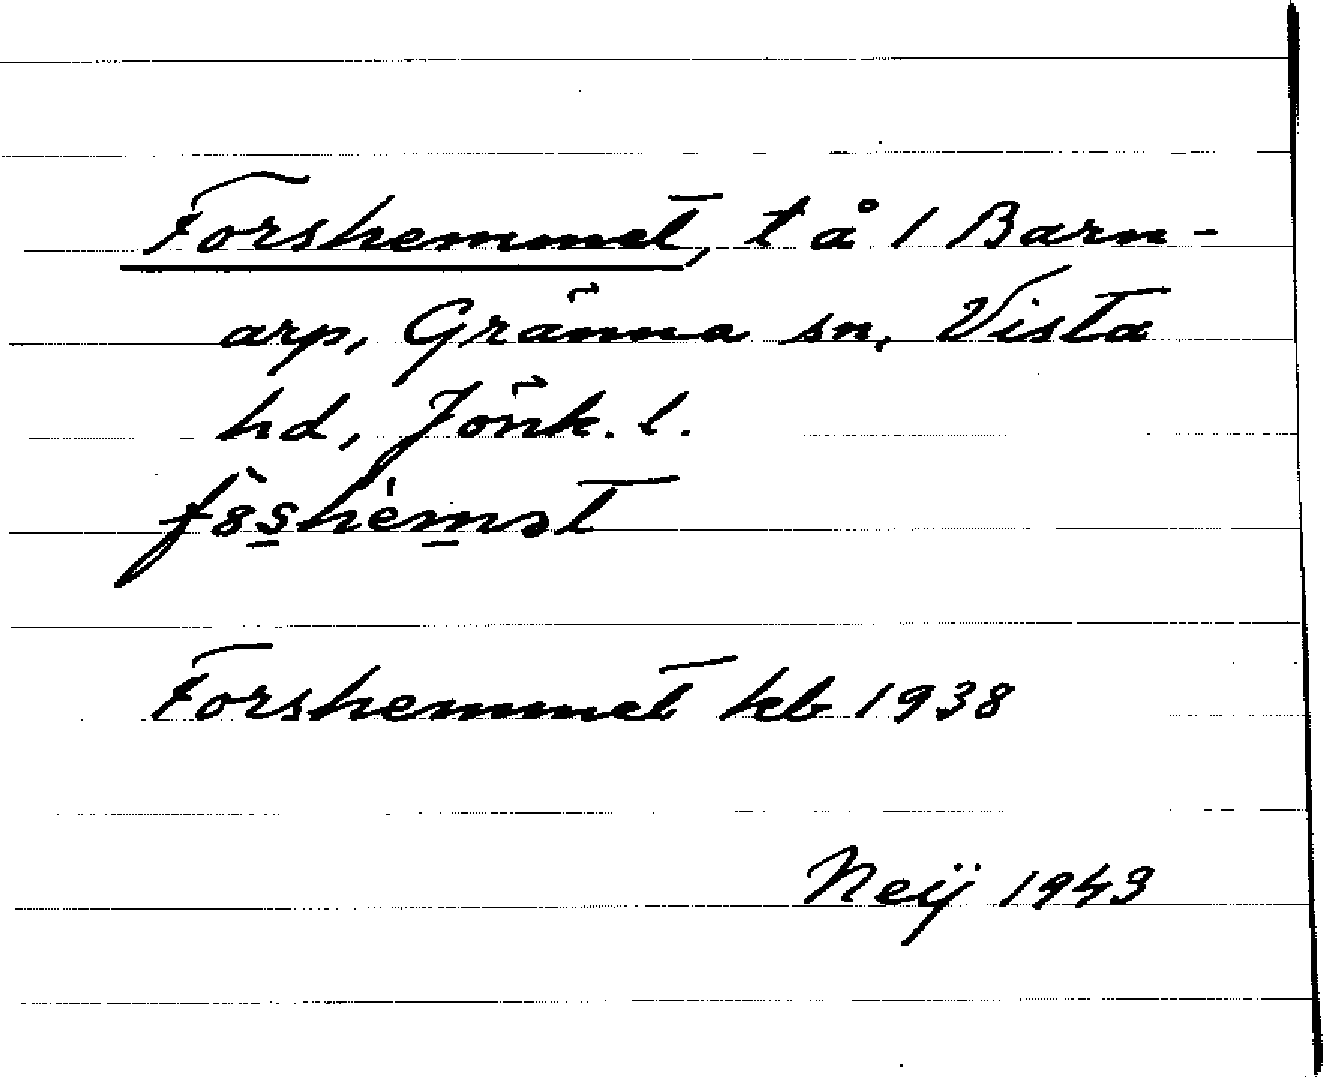 Forshemmet, t å 1 Barn-
arp, Gränna sn, Vista
hd, Jönk. l.
Forshemmet kb 1938
Neij 1943